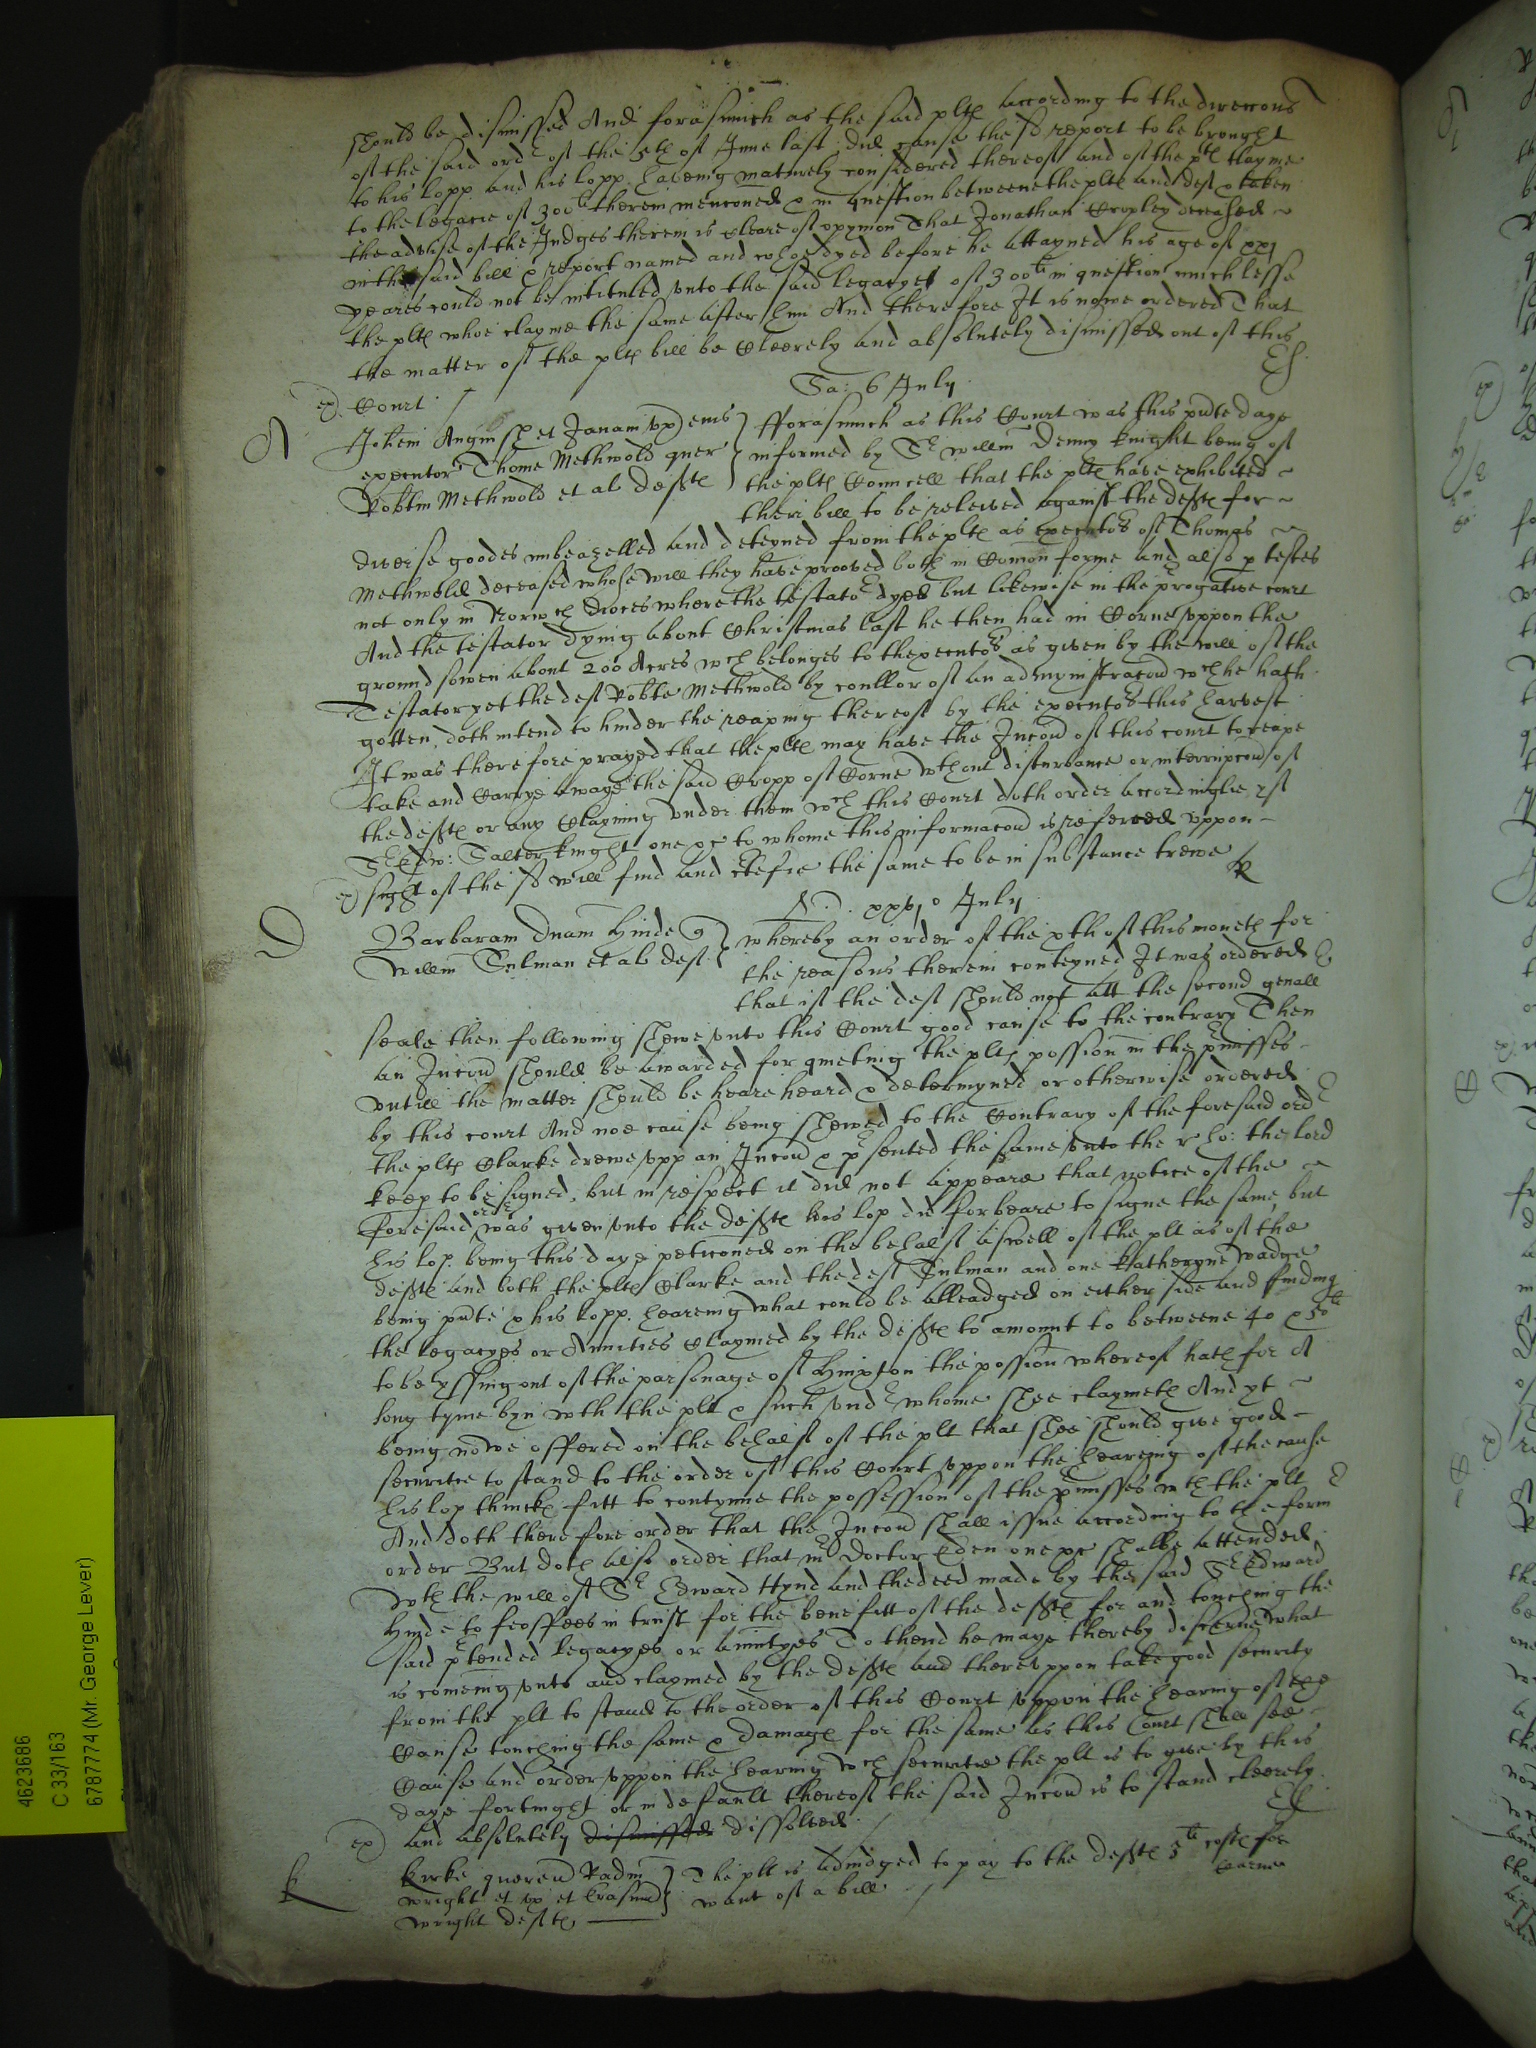 should be dismissed And forasmuch as the said plts according to the direccons
of the said ordr of the 5th of June last did cause the sd report to be brought
to his lopp and his lopp. haveing maturely considered thereof and of the plts clayme
to the legacie of 300li therein menconed & in question betweene the plts and deft & taken
the advise of the Judges therein is cleare of opynion That Jonathan Cropley deceased
in the said bill & report named and whoe dyed before he attayned his age of xxj
yeares could not be intituled unto the said legacyes of 300li in question much lesse
the plts whoe clayme the same after him And therefore It is nowe ordered That
the matter of the plts bill be cleerely and absolutely dismissed out of this
ex Court
Sa: 6 July
A
Johem Angiush et Janam ux eius
executor Thome Methwold quer
Robtm Methwold et al defts
fforasmuch as this Court was this pnte daye
informed by Sr Willm Denny knight being of
the plts Councell that the plts have exhibited
their bill to be releived against the defts for
diverse goodes imbeazelled and deteyned from the plts as executors of Thomas
Methwold deceased whose will they have prooved both in Comon forme and also p testes
not only in Norwch dioces where the testator dyed but likewise in the progative court
And the testator dying about Christmas last he then had in Corne uppon the
ground sowen about 200 Acres wch belonges to thexecutors as given by the will of the
Testator yet the deft Robte Methwold by coullor of an admynistracon wch he hath
gotten, doth intend to hinder the reaping thereof by the executors this harvest
It was therefore prayed that the plts may have the Iniccon of this court to reape
take and Carrye awaye the said Cropp of Corne wthout disturbance or interrupcon of
the defts or any claymeing under them wch this Court doth order accordinglie if
Sr Edw: Salter knight one &c to whome this informacon is referred uppon
ex sight of the sd will find and ctefie the same to be in substance trewe
R
xxvjo July
D
Barbaram Dnam Hinde q
Willm Sulman et al deft
Whereby an order of the xth of this moneth for
the reasons therein conteyned It was ordered
that if the deft should not att the second genall
seale then following shewe unto this Court good cause to the contrary Then
an Iniccon should be awarded for quieting the plts possion in the pmisses
untill the matter should be heare heard & determyned or otherwise ordered
by this court And noe cause being shewed to the Contrary of the foresaid ordr
the plts Clarke drewe upp an Iniccon & psented the same unto the r ho: the lord
keep to be signed, but in respect it did not appeare that notice of the
foresaid ordr was given unto the defts his lop did forbeare to signe the same, but
his lop. being this daye peticoned on the behalf aswell of the plt as of the
defts and both the plts Clarke and the deft Sulman and one Katheryne Wadge
being pnte & his lopp. heareing what could be alleadged on either side and finding
the legacyes or Anuities claymed by the defts to amount to betweene 40 & 50li
to be yssuing out of the parsonage of Himpton the possion whereof hath for a
long tyme byn wth the plt & such undr whome shee claymeth And yt
being nowe offered on the behalf of the plt that shee should give good
securitie to stand to the order of this Court uppon the heareing of the cause
his lop thinckes fitt to contynue the possession of the pmisses wth the plt
And doth therefore order that the Iniccon shall issue according to the form
order But doth also order that mr Doctor Eden one &c shalbe attended
wth the will of Sr Edward Hynd and the deed made by the said Sr Edward
Hinde to feoffees in trust for the benefitt of the defts for and touching the
said ptended legacyes or anuityes To thend he maye thereby discerne what
is comeing unto and claymed by the defts and thereuppon take good security
from the plt to stand to the order of this Court uppon the hearing of the
Cause touching the same & damages for the same as this Court shall see
Cause and order uppon the hearing wch securitie the plt is to give by this
daye fortnight or in default thereof the said Iniccon is to stand cleerely
ex and absolutely dismissed dissolved
K
Kirke queren Radm
Wright et ux et Erasmum
Wright defts
The plt is adiudged to pay to the defts 5li costs for
want of a bill
4623686
C 33/163
6787774 (Mr. George Lever)